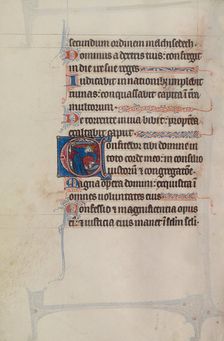 secundum ordinem melchisedech
Dominus a dextris tuis: confregit
in die ire sue reges
Iudicabit in nationibus implebit
ruinas: conquassabit capita in terra
multorum
De torrente in via bibet: propterea
exaltabit caput
Confitebor tibi domine in
toto corde meo: in consilio
iustorum et congregatione
Magna opera domini: exquisita in
omnes voluntates eius
Confessio et magnificentia opus
eius: et iusticia eius manet in seculum seculi